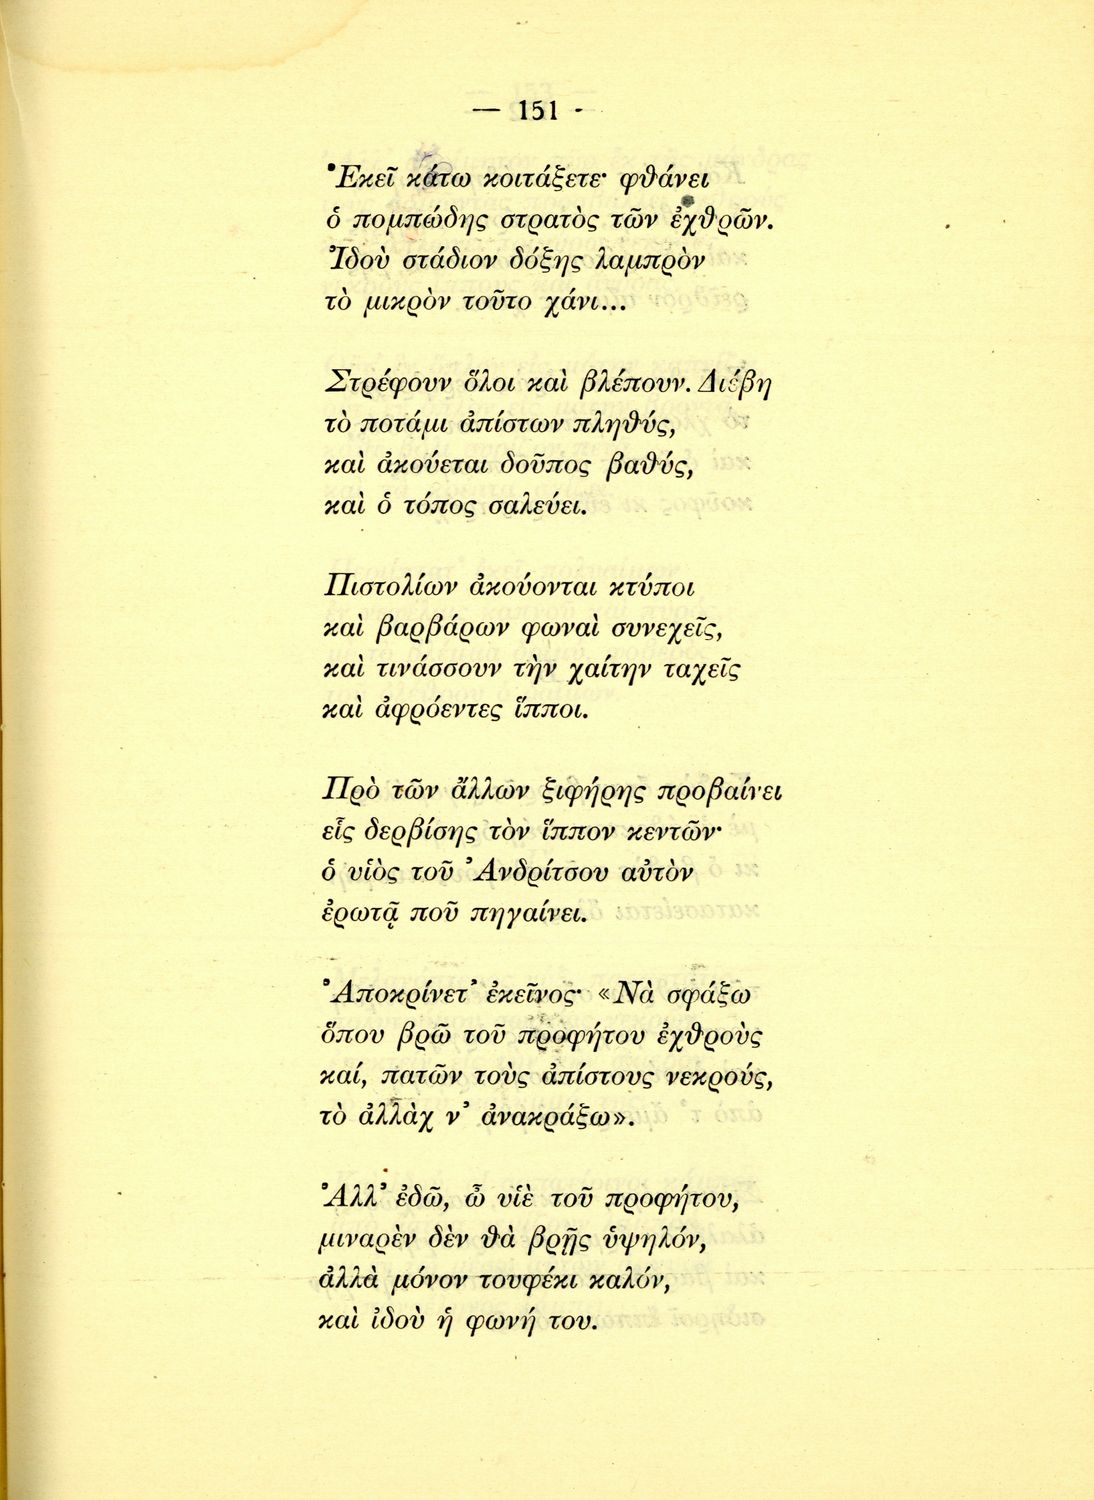 — 151 -
Ἐκεῖ κάτω κοιτάξετε· φθάνει
ὁ πομπώδης στρατὸς τῶν ἐχθρῶν.
Ἰδοὺ στάδιον δόξης λαμπρὸν
τὸ μικρὸν τοῦτο χάνι...
Στρέφουν ὅλοι καὶ βλέπουν. Διέβη
τὸ ποτάμι ἀπίστων πληθύς,
καὶ ἀκούεται δοῦπος βαθύς,
καὶ ὁ τόπος σαλεύει.
Πιστολίων ἀκούονται κτύποι
καὶ βαρβάρων φωναὶ συνεχεῖς,
καὶ τινάσσουν τὴν χαίτην ταχεῖς
καὶ ἀφρόεντες ἵπποι.
Πρὸ τῶν ἄλλων ξιφήρης προβαίνει
εἷς δερβίσης τὸν ἵππον κεντῶν·
ὁ υἱὸς τοῦ Ἀνδρίτσου αὐτὸν
ἐρωτᾷ ποῦ πηγαίνει.
Ἀποκρίνετ' ἐκεῖνος· «Νὰ σφάξω
ὅπου βρῶ τοῦ προφήτου ἐχθροὺς
καί, πατῶν τοὺς ἀπίστους νεκρούς,
τὸ ἀλλὰχ ν' ἀνακράξω».
Ἀλλ' ἐδῶ, ὦ υἱὲ τοῦ προφήτου,
μιναρὲν δὲν θὰ βρῇς ὑψηλόν,
ἀλλὰ μόνον τουφέκι καλόν,
καὶ ἰδοὺ ἡ φωνή του.